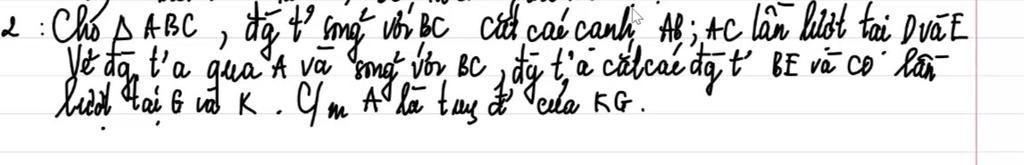 2 : Cho △ ABC , đg t² song² với BC cắt các cạnh AB ; AC lần lượt tại D và E
Vẽ đg t' a qua A và song² với BC , đg t' a cắt các đg t' BE và CD lần
lượt tại G và K . C/m A là trung đ' của KG .